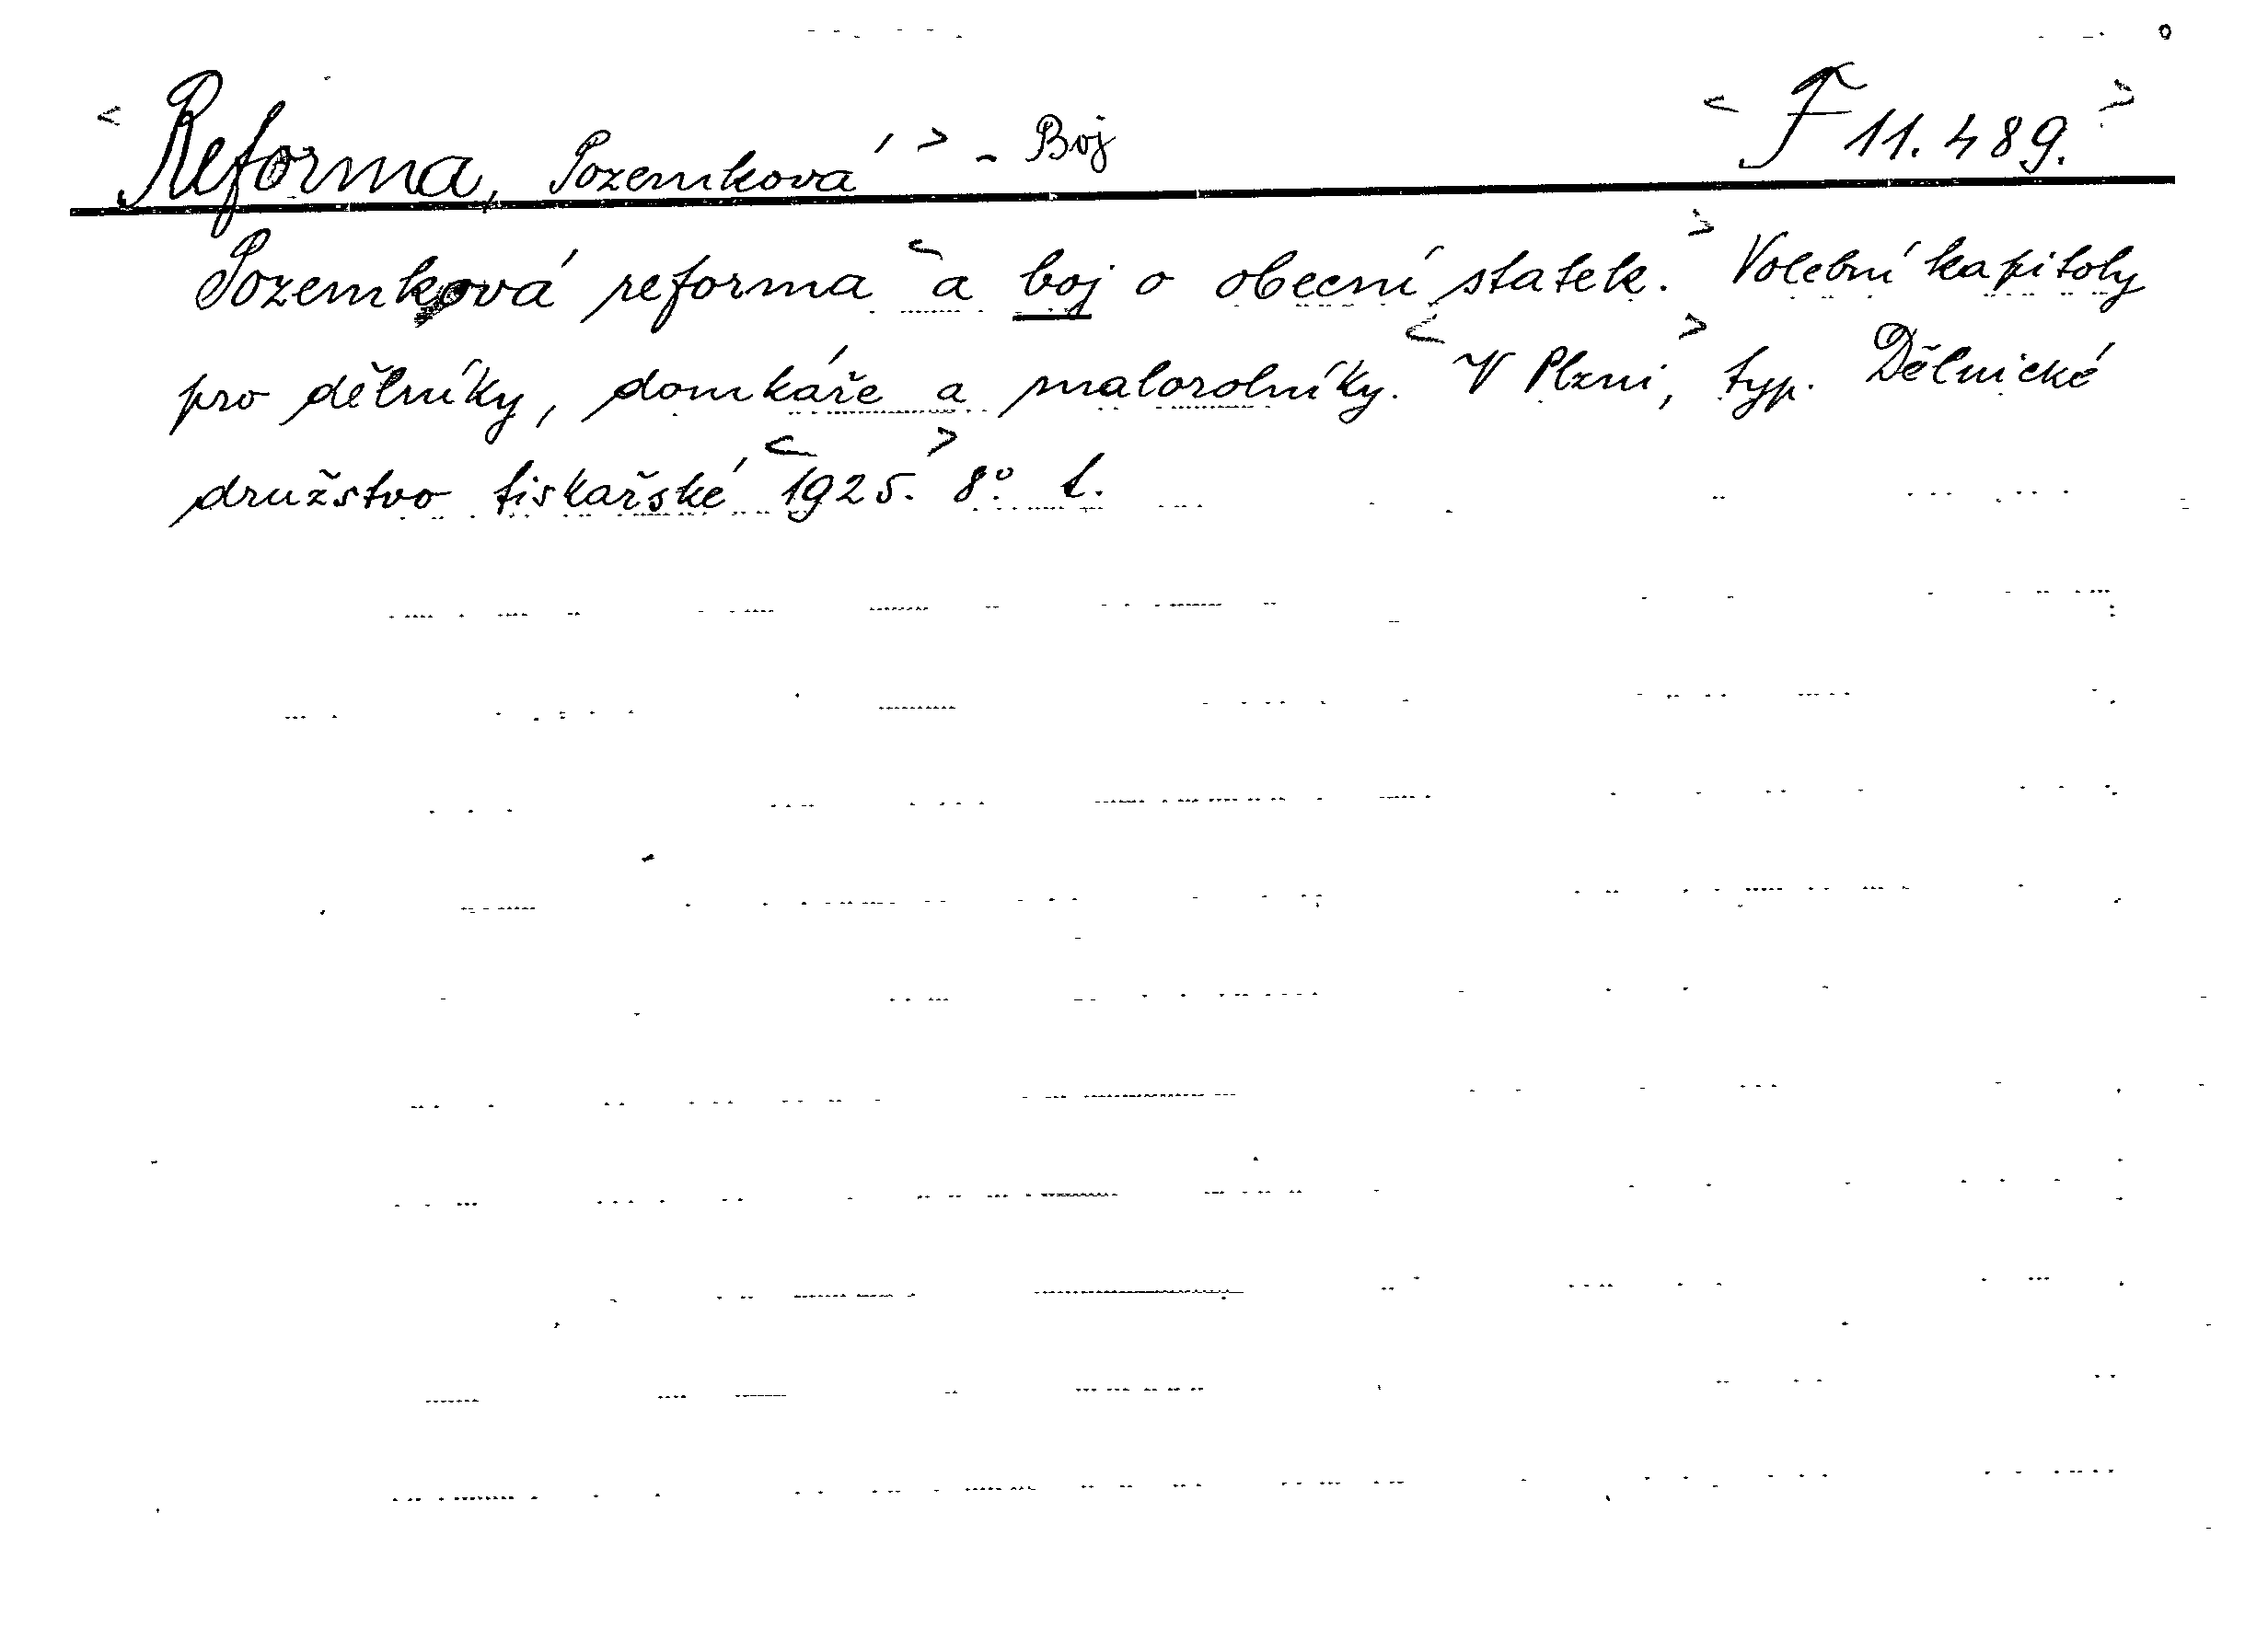 < Reforma, Pozemková > - Boj < F 11.489. >
Pozemková reforma < a boj o obecní statek. > Volební kapitoly
pro dělníky, domkáře a malorolníky. < V Plzni, > typ. Dělnické
družstvo tiskařské < 1925. > 8°. l.